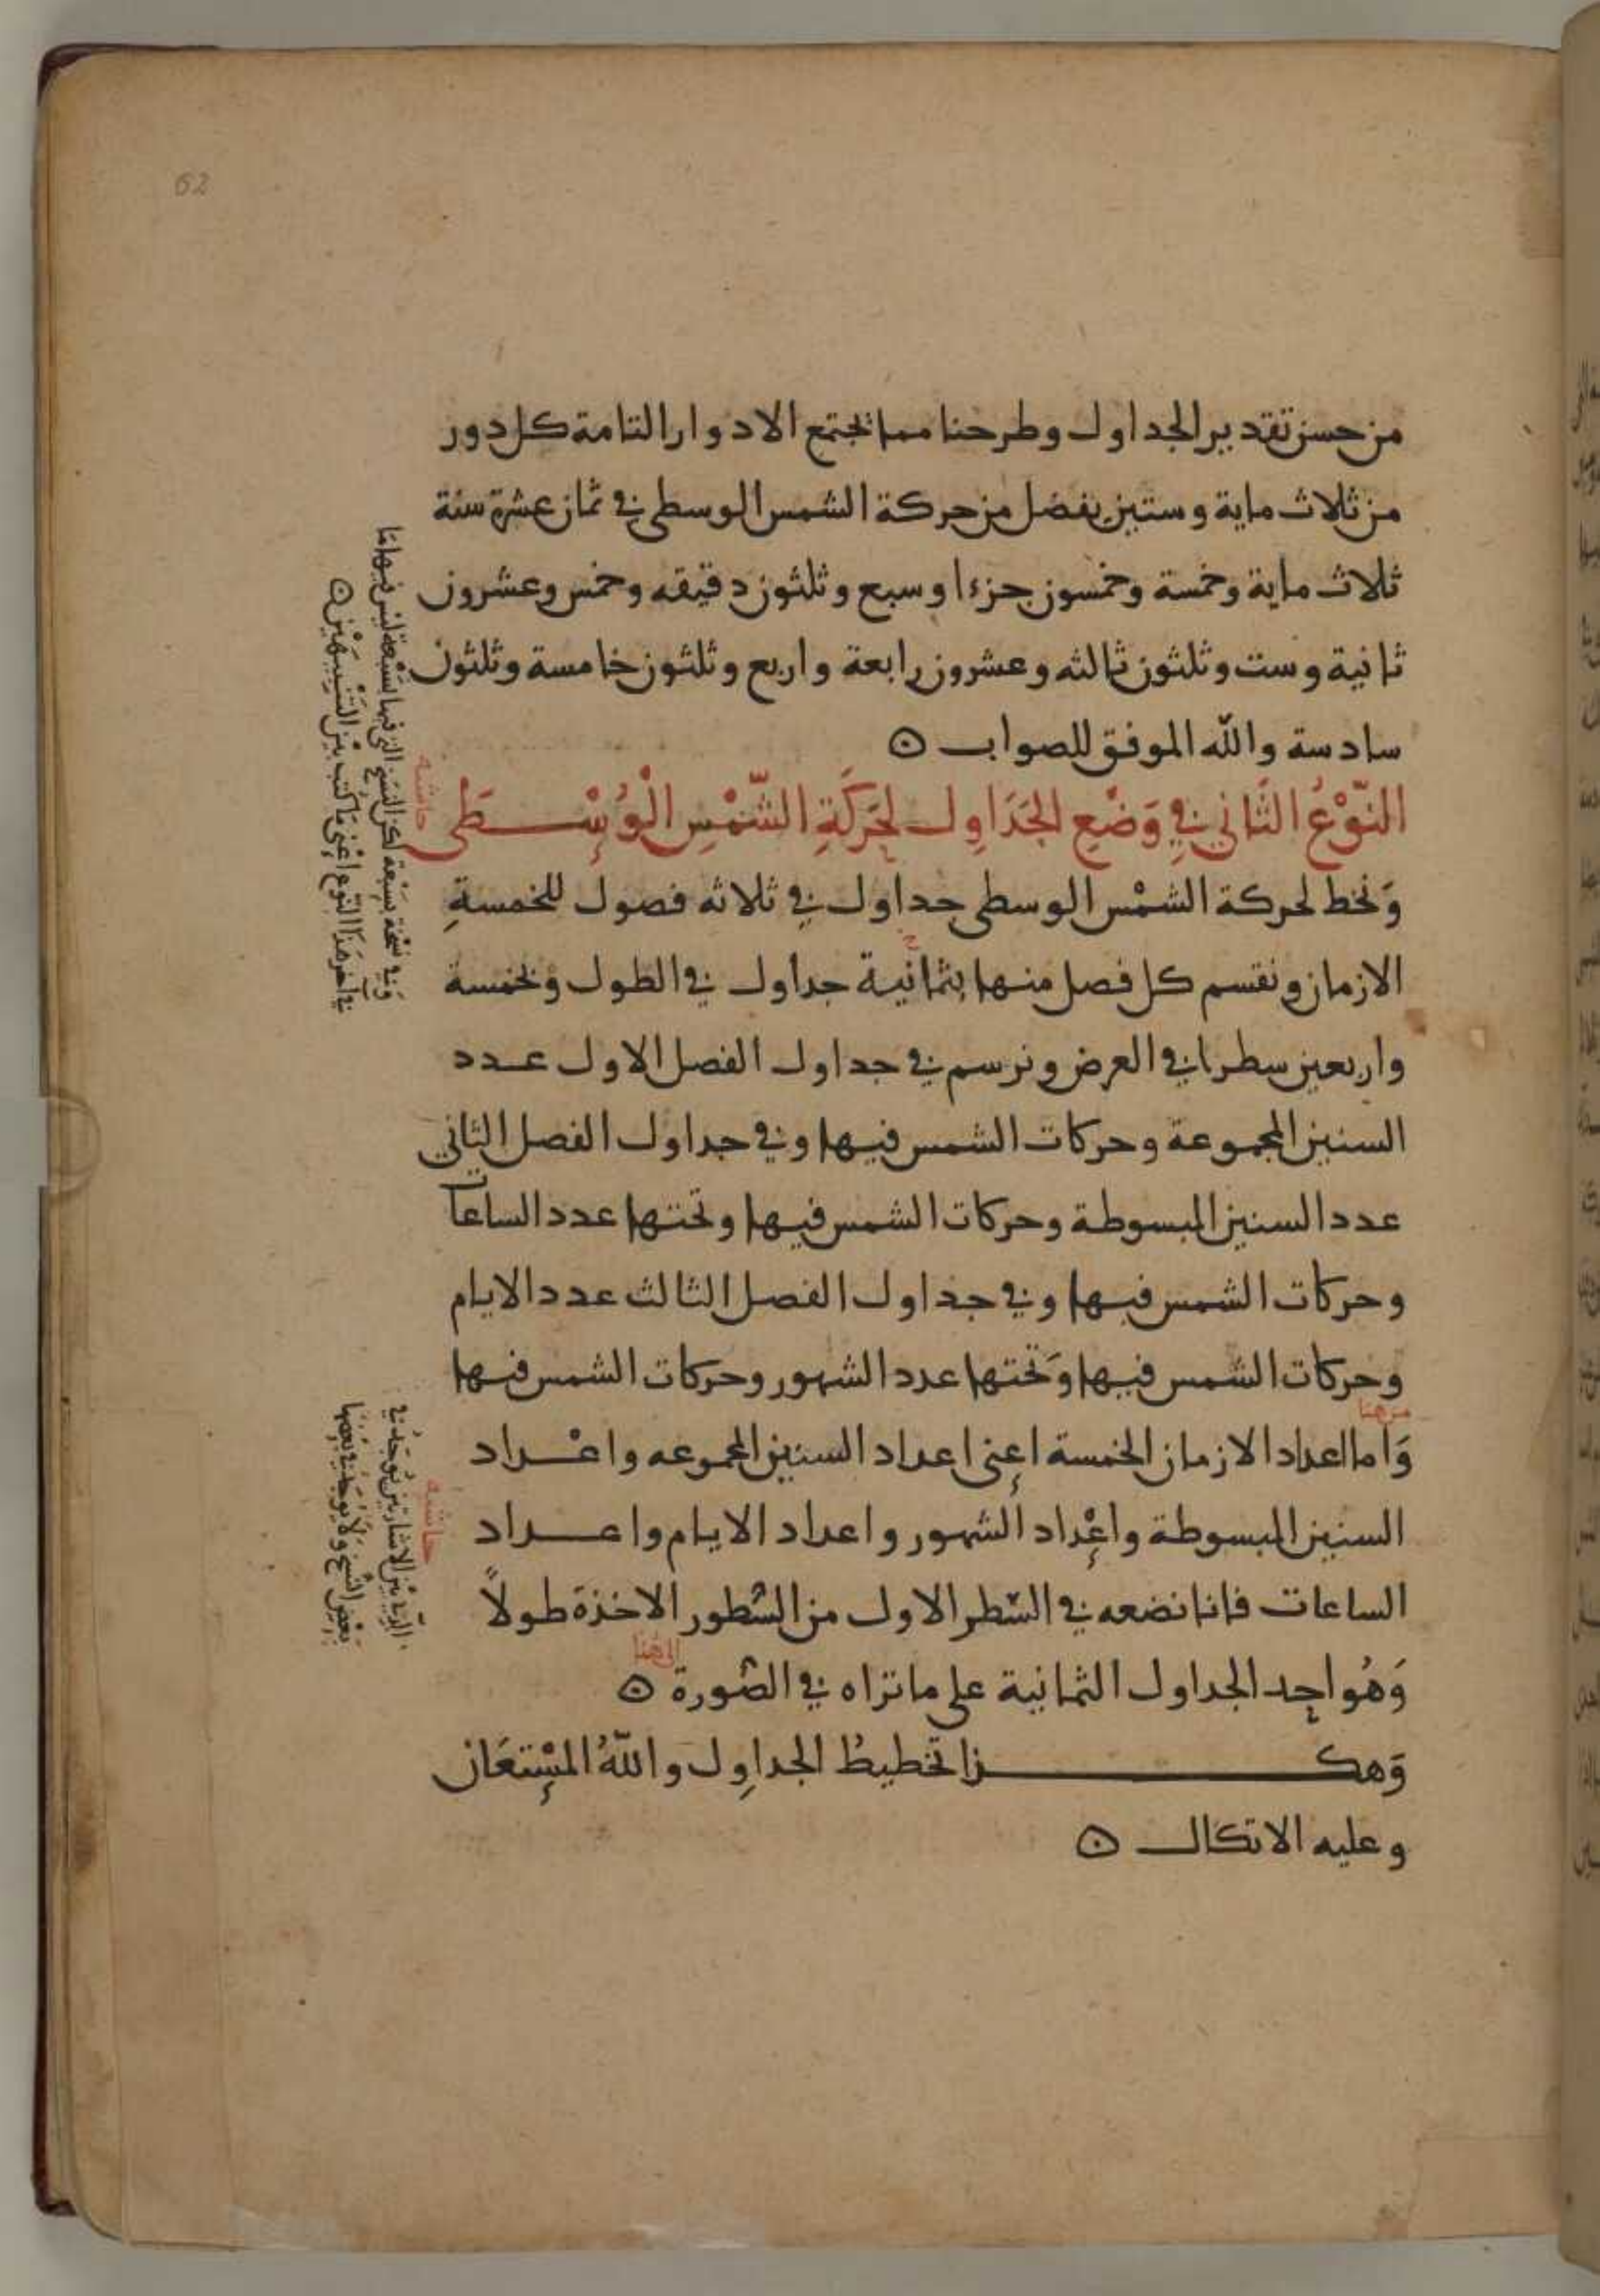 62
من حسن تقدير الجداول وطرحنا مما يجتمع الادوار التامة كل دور
من ثلاث ماية وستين يفضل من حركة الشمس الوسطى في ثمان عشرة سنة
ثلاث ماية وخمسة وخمسون جزءا وسبع وثلثون دقيقه وخمس وعشرون
ثانية وست وثلثون ثالثه وعشرون رابعة واربع وثلثون خامسة وثلثون
سادسة والله الموفق للصواب
النَّوْعُ الثَّاني في وَضْعِ الجَدَاوِل لحَرَكَةِ الشَّمْسِ الْوُسْطَى
وَنخط لحركة الشمْس الوسطى جداول في ثلاثه فصول للخمسةِ
الازمان ونقسم كل فصل منها بثمانية جداول في الطول وبخمسة
واربعين سطرا في العرض ونرسم في جداول الفصل الاول عدد
السنين المجموعة وحركات الشمس فيها وفي جداول الفصل الثاني
عدد السنين المبسوطة وحركات الشمس فيها وتحتها عدد الساعات
وحركات الشمس فيها وفي جداول الفصل الثالث عدد الايام
وحركات الشمس فيها وَتحتها عدد الشهور وحركات الشمس فيها
من هنا
وَاما اعداد الازمان الخمسة اعنى اعداد السنين المجموعه واعْداد
السنين المبسوطة واعْداد الشهور واعداد الايام واعداد
الساعات فاننا نضعه في السّطر الاول من السُّطور الاخذة طولاً
الى هنا
وَهُو احد الجداول الثمانية على ما تراه في الصُّورة
وَهكذا تخطيطُ الجداوِل واللهُ المسْتعَان
وعليه الاتكال
حاشية
وَفي نسْخة بسَبْعة لكن النسَخ التي فيها بسَبْعة ليس فيها مَا
في آخر هَذَا النّوع اعْني مَا كتبَ بَيْن التَّنبيهَيْن
حاشية
الّذي بيْن الاشارتين يُوجَد في
بَعْض النّسَخ وَلَا يُوجَد في بَعْضِهَا